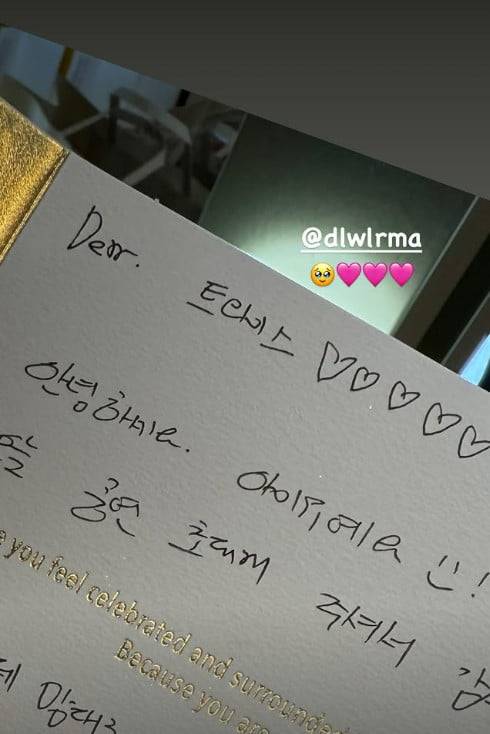 @dlwlrma
Dear.
안녕하세요. 아이유예요 !
공연 초대해 주셔서 감
you feel celebrated and surrounded
Because you are